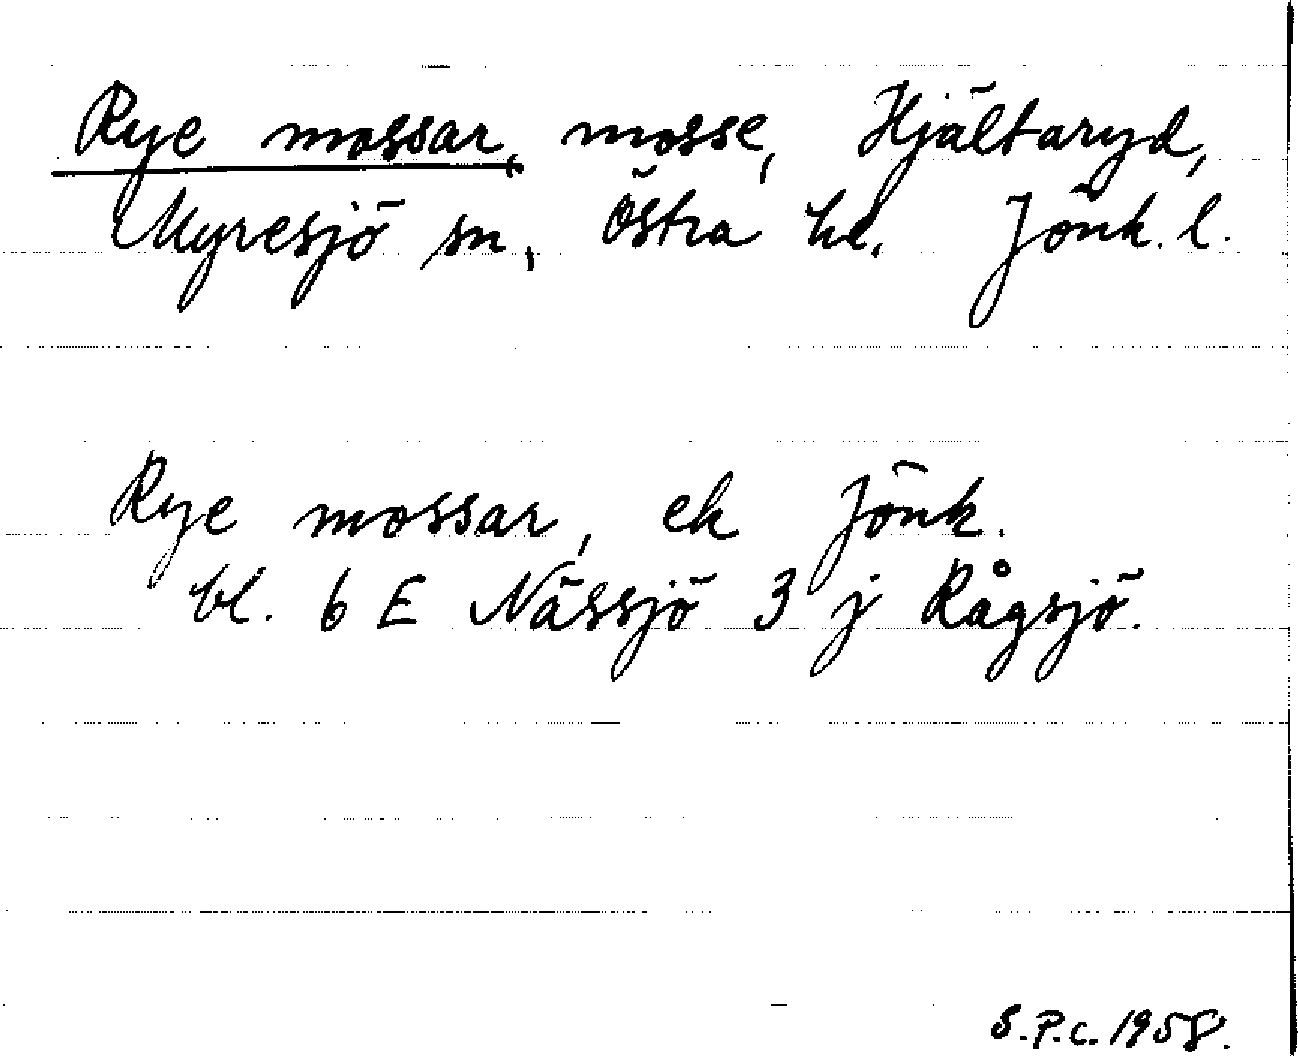 Rye mossar, mosse, Hjältaryd,
Myresjö sn, Östra hd. Jönk. l.
Rye mossar, ek Jönk.
bl. 6 E Nässjö 3 j Rågsjö.
S.P.C. 1958.